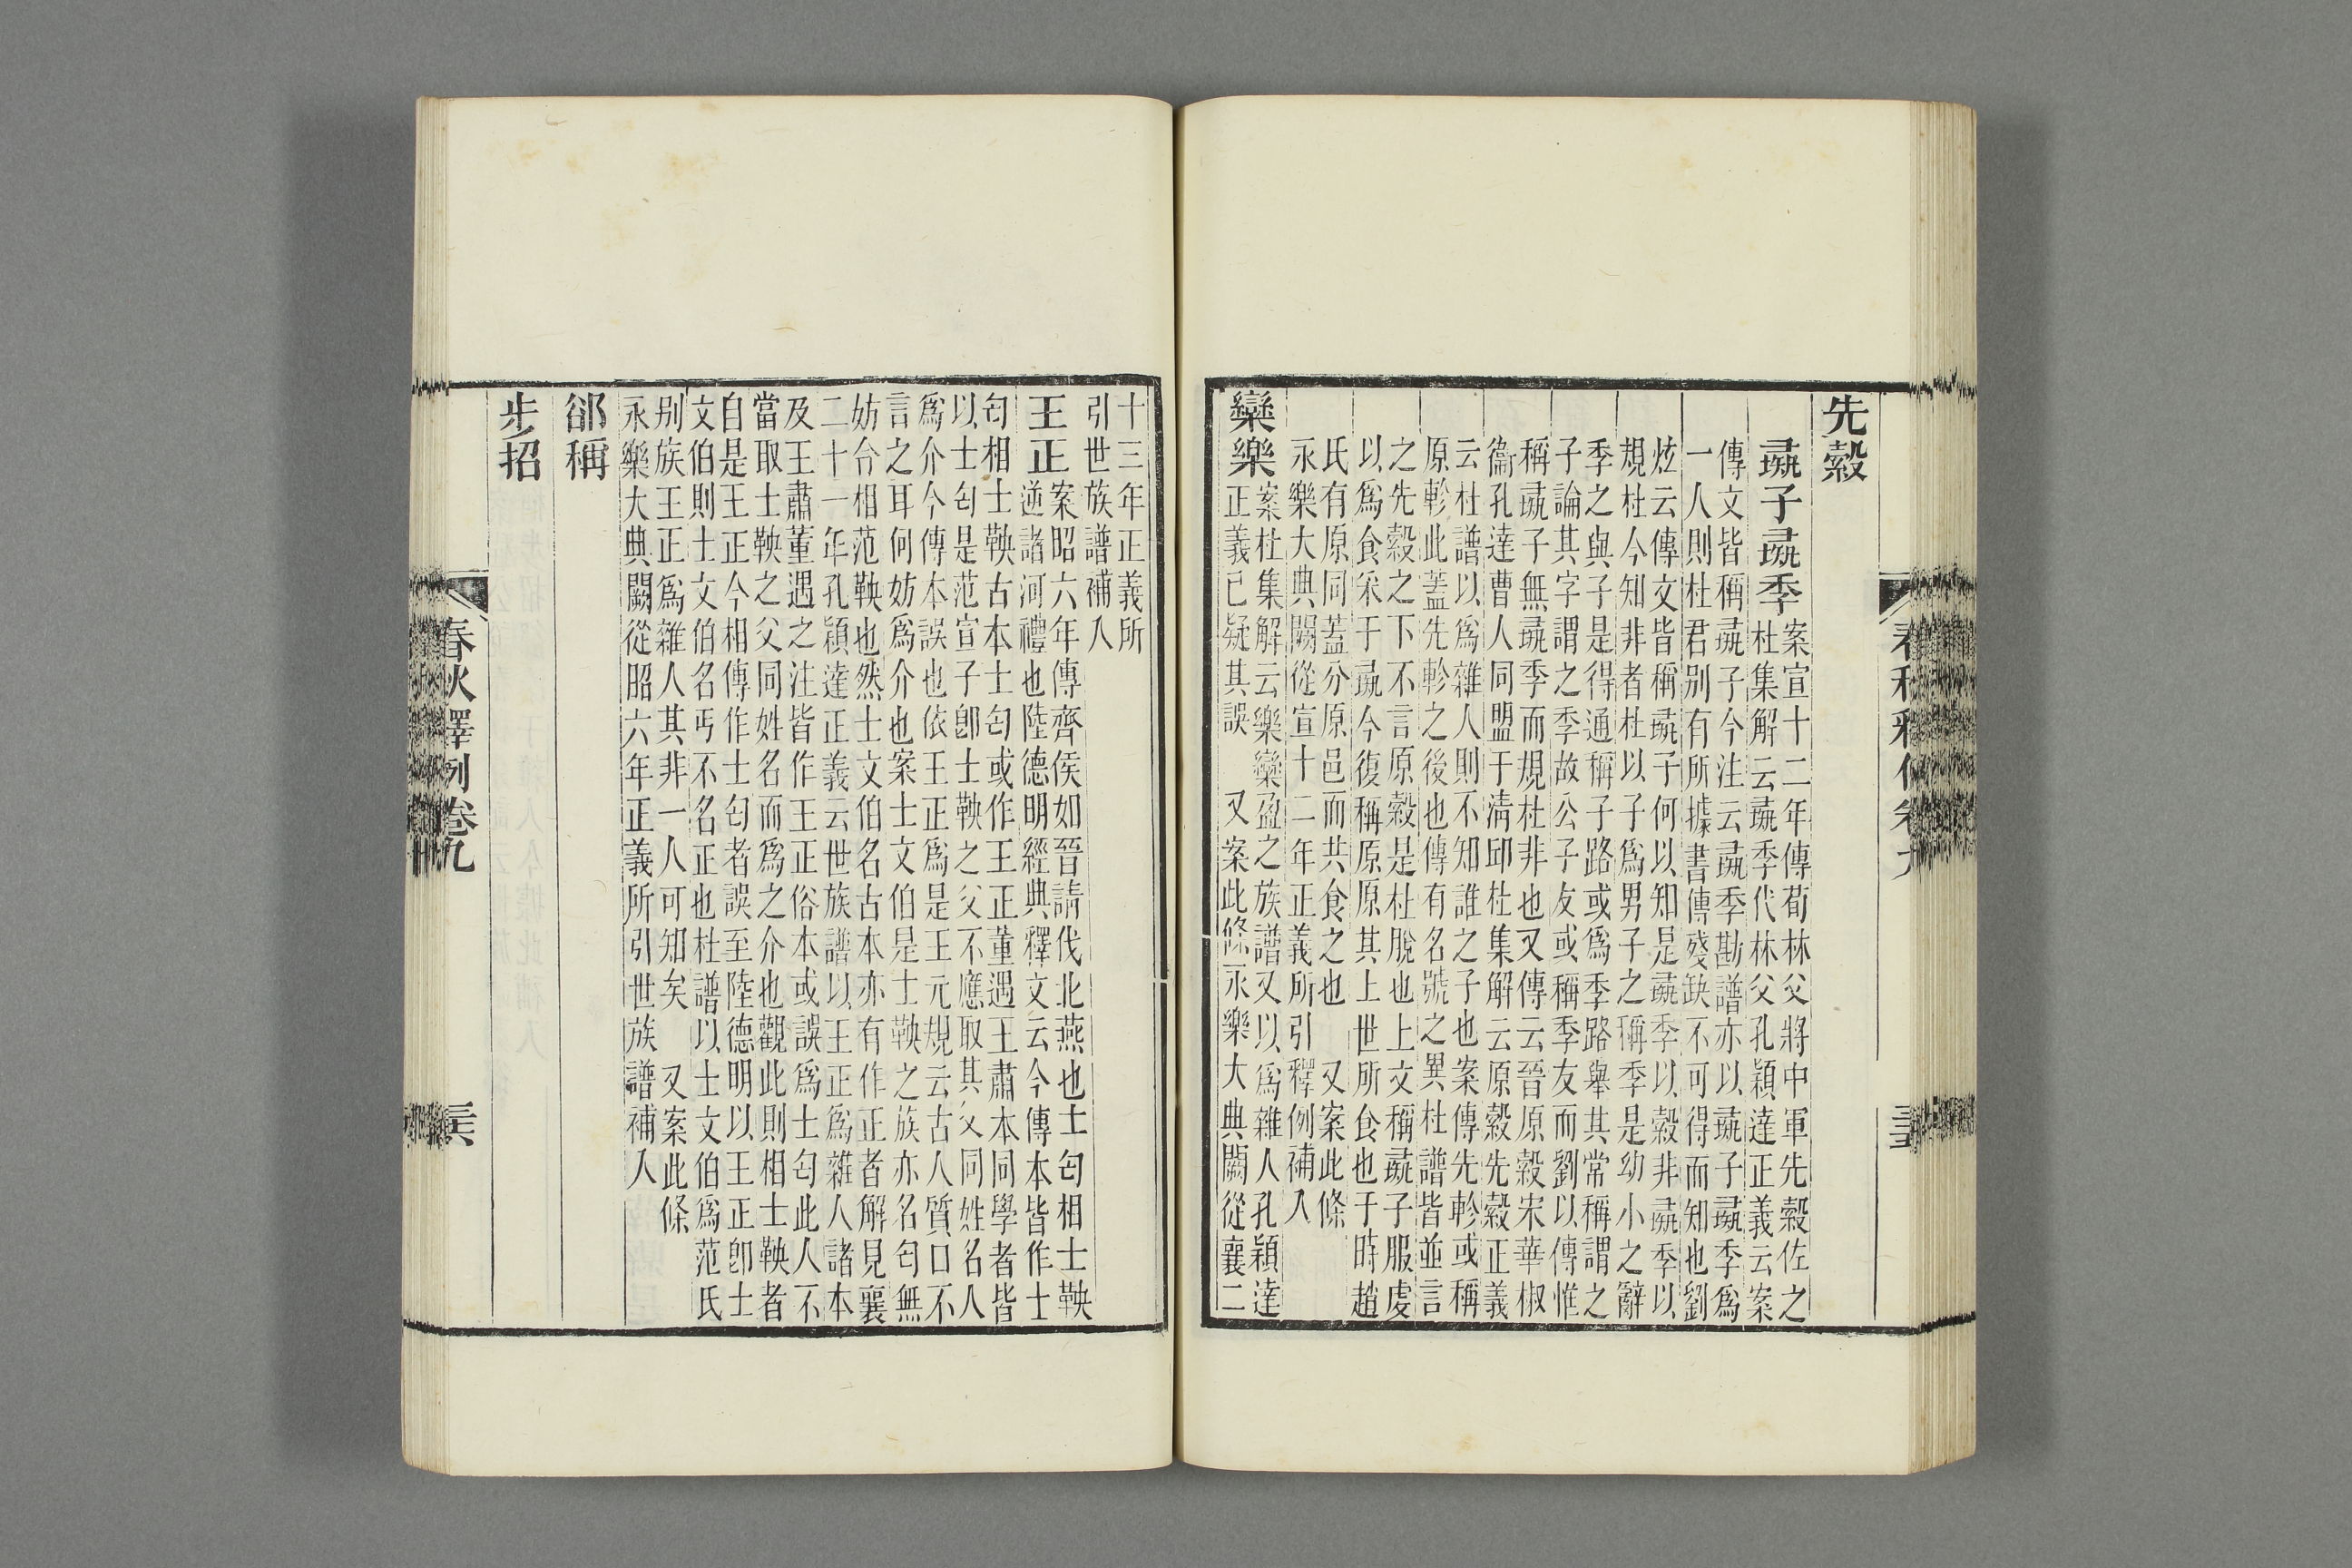 先縠
彘子彘季
案宣十二年傳荀林父將中軍先縠佐之
杜集解云彘季代林父孔穎達正義云案
傳文皆稱彘子今注云彘季勘譜亦以彘子彘季爲
一人則杜君别有所據書傳殘缺不可得而知也劉
炫云傳文皆稱彘子何以知是彘季以縠非彘季以
規杜今知非者杜以子爲男子之稱季是幼小之辭
季之與子是得通稱子路或爲季路舉其常稱謂之
子論其字謂之季故公子友或稱季友而劉以傳惟
稱彘子無彘季而規杜非也又傳云晉原縠宋華椒
衞孔達曹人同盟于淸邱杜集解云原縠先縠正義
云杜譜以爲雜人則不知誰之子也案傳先軫或稱
原軫此蓋先軫之後也傳有名號之異杜譜皆並言
之先縠之下不言原縠是杜脫也上文稱彘子服虔
以爲食采于彘今復稱原原其上世所食也于時趙
氏有原同蓋分原邑而共食之也 又案此條
永樂大典闕從宣十二年正義所引釋例補入
欒樂
案杜集解云樂欒盈之族譜又以爲雜人孔穎達
正義已疑其誤 又案此條永樂大典闕從襄二
十三年正義所
引世族譜補入
王正
案昭六年傳齊侯如晉請伐北燕也士匄相士鞅
逆諸河禮也陸德明經典釋文云今傳本皆作士
匄相士鞅古本士匄或作王正董遇王肅本同學者皆
以士匄是范宣子卽士鞅之父不應取其父同姓名人
爲介今傳本誤也依王正爲是王元規云古人質口不
言之耳何妨爲介也案士文伯是士鞅之族亦名匄無
妨台相范鞅也然士文伯名古本亦有作正者解見襄
二十一年孔穎達正義云世族譜以王正爲雜人諸本
及王肅董遇之注皆作王正俗本或誤爲士匄此人不
當取士鞅之父同姓名而爲之介也觀此則相士鞅者
自是王正今相傳作士匄者誤至陸德明以王正卽士
文伯則士文伯名丐不名正也杜譜以士文伯爲范氏
别族王正爲雜人其非一人可知矣 又案此條
永樂大典闕從昭六年正義所引世族譜補入
郤稱
步招
春秋釋例卷九